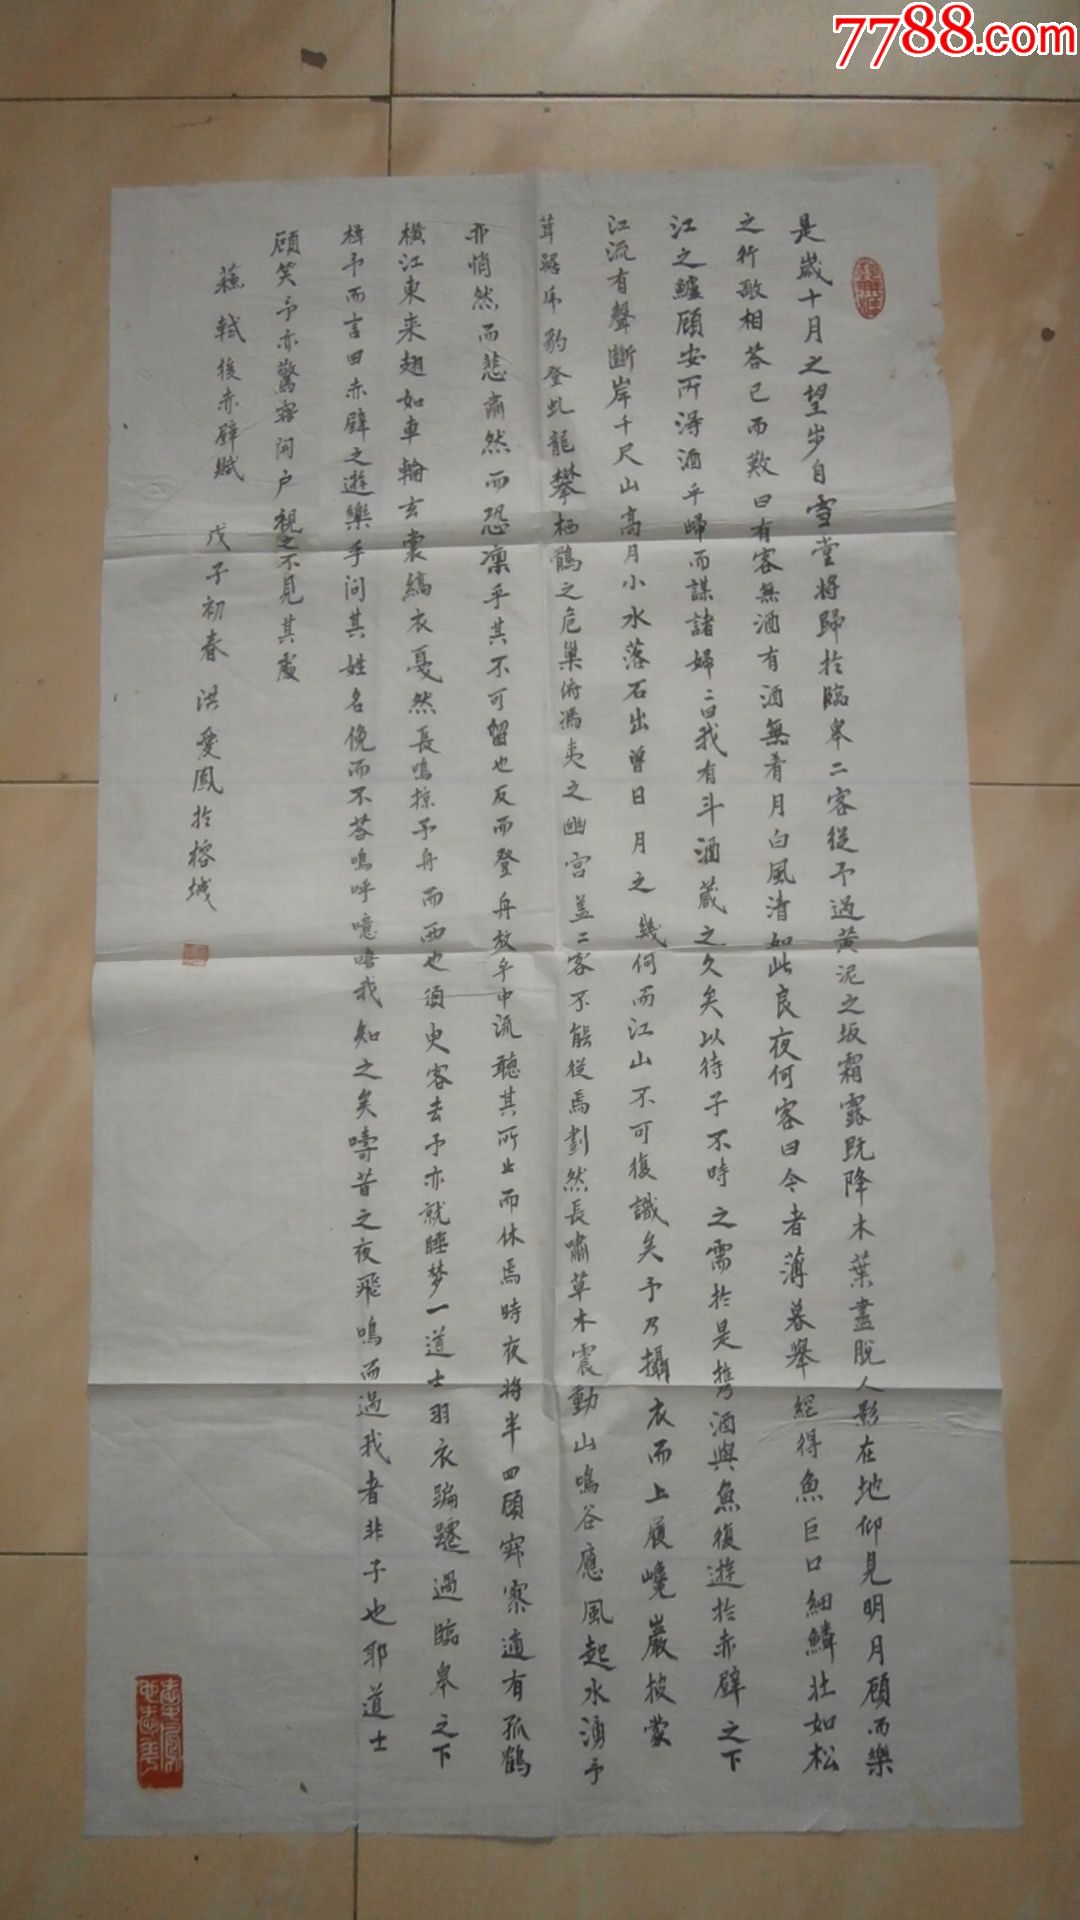 7788.com
是歲十月之望步自雪堂將歸於臨皋二客從予過黃泥之坂霜露既降木葉盡脫人影在地仰見明月顧而樂
之行歌相答已而歎曰有客無酒有酒無肴月白風清如此良夜何客曰今者薄暮舉網得魚巨口細鱗壯如松
江之鱸顧安所得酒乎歸而謀諸婦二曰我有斗酒蔵之久矣以待子不時之需於是攜酒與魚復遊於赤壁之下
江流有聲斷岸千尺山高月小水落石出曾日月之幾何而江山不可復識矣予乃攝衣而上履巉巖披蒙
茸踞虎豹登虬龍攀栖鶻之危巢俯馮夷之幽宮盖二客不能從焉劃然長嘯草木震動山鳴谷應風起水湧予
亦悄然而悲肅然而恐凜乎其不可留也反而登舟放乎中流聽其所止而休焉時夜將半四顧寂寥適有孤鶴
橫江東来翅如車輪玄裳縞衣戛然長鳴掠予舟而西也須臾客去予亦就睡梦一道士羽衣蹁躚過臨皋之下
揖予而言曰赤壁之遊樂乎問其姓名俛而不荅嗚呼噫嘻我知之矣疇昔之夜飛鳴而過我者非子也耶道士
顧笑予亦驚寤開户視之不見其處
蘇軾後赤壁賦 戊子初春 洪愛鳳於榕城